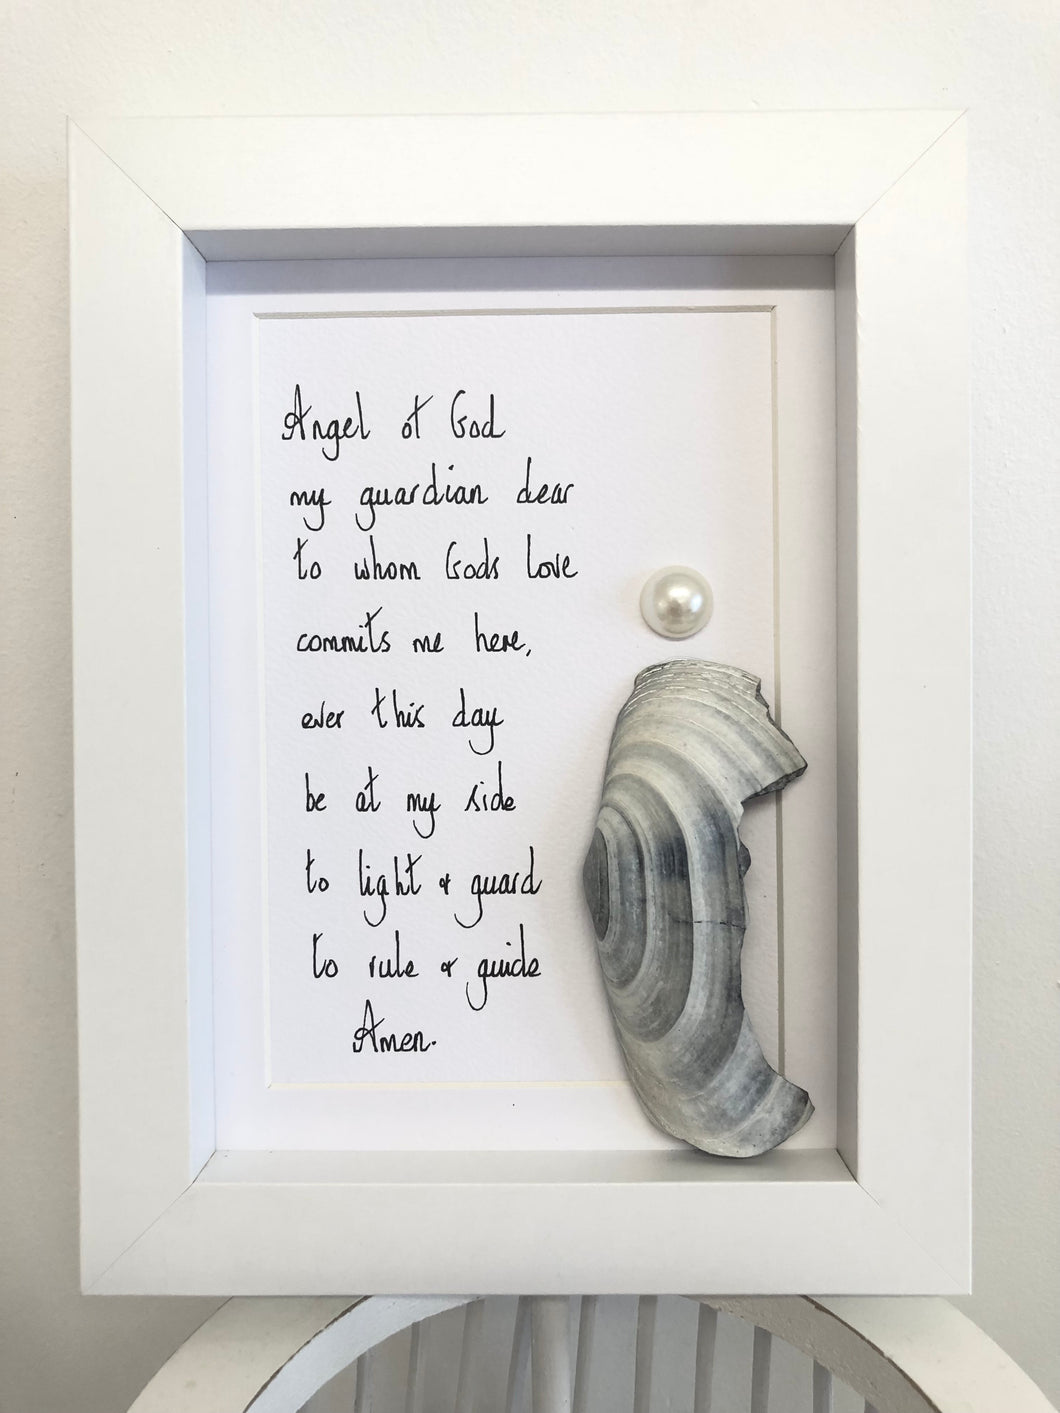 Angel of God
my guardian dear
to whom Gods love
commits me here,
ever this day
be at my side
to light & guard
to rule & guide
Amen.